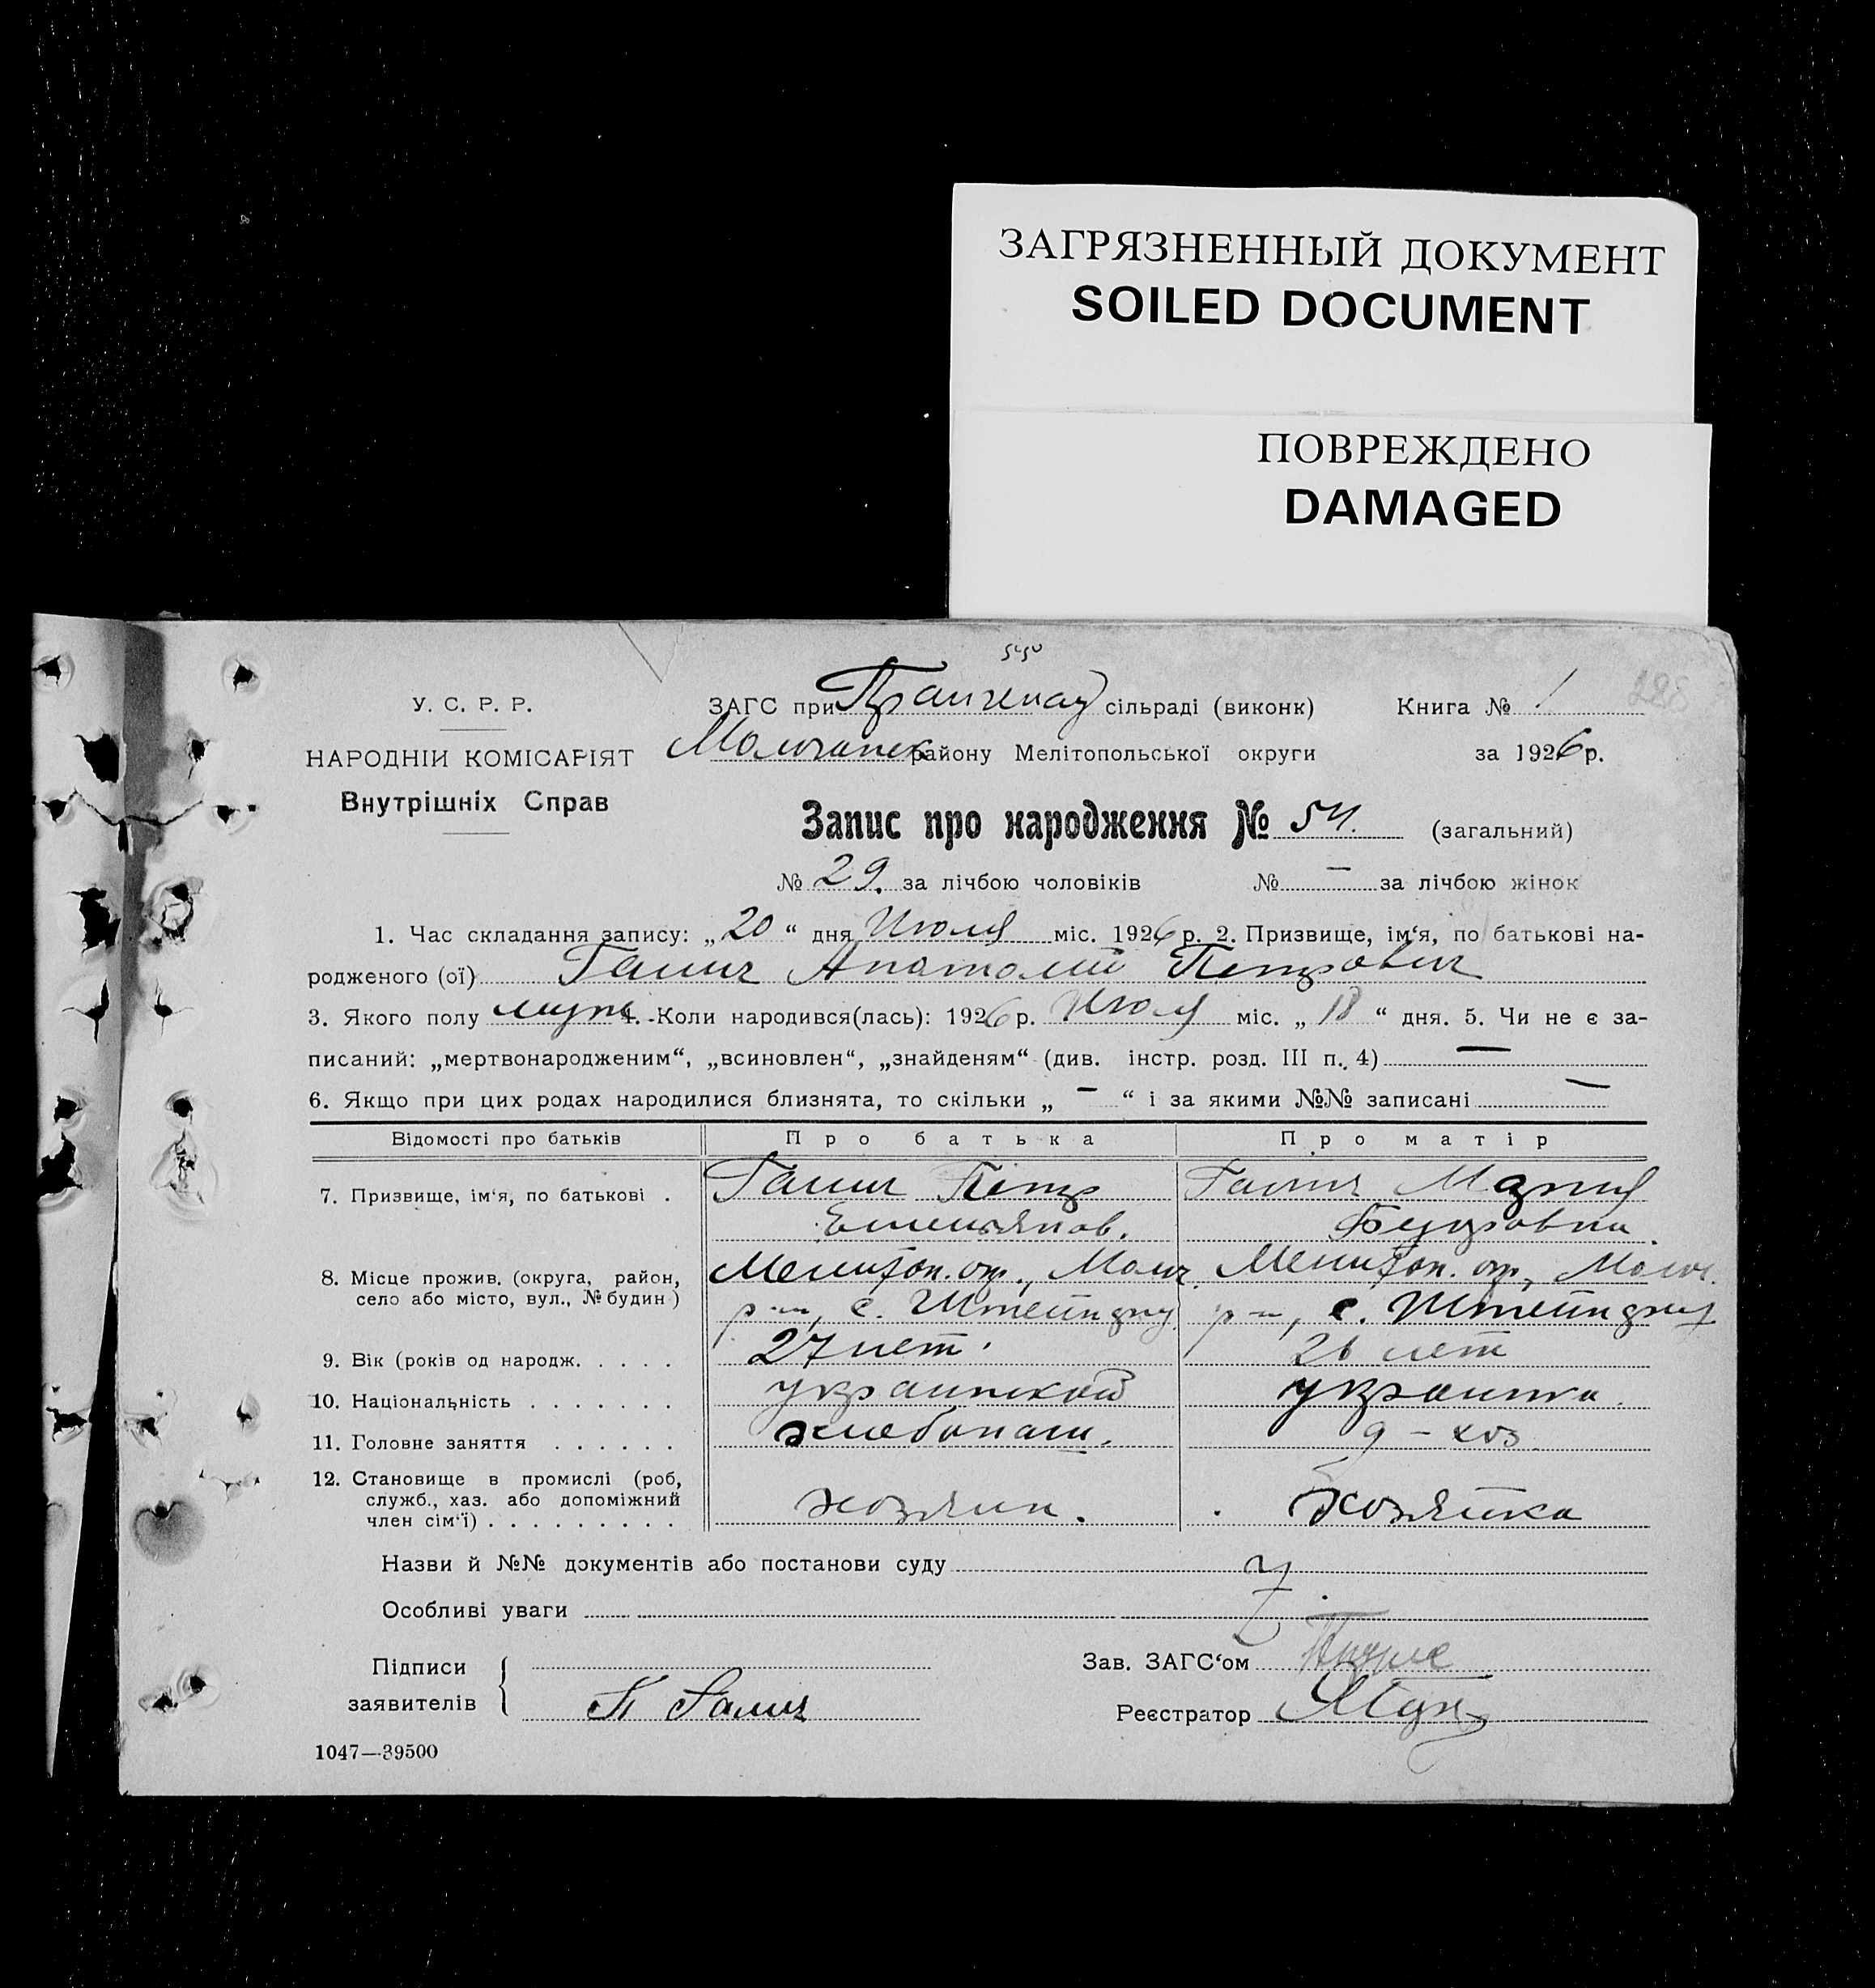 ЗАГРЯЗНЕННЫЙ ДОКУМЕНТ
SOILED DOCUMENT
ПОВРЕЖДЕНО
DAMAGED
У. С. Р. Р.
НАРОДНІИ КОМІСАРІЯТ
Внутрішніх Справ
ЗАГС при сільраді (виконк) Книга № 1
Молочанск району Мелітопольської округи за 1926 р.
Запис про народження № 54. (загальний)
№ 29. за лічбою чоловіків № — за лічбою жінок
1. Час складання запису: „20“ дня Июля міс. 1926 р. 2. Призвище, ім‘я, по батькові на-
родженого (ої) Галич Анатолий Петрович
3. Якого полу муж 4. Коли народився(лась): 1926 р. Июля міс. „18“ дня. 5. Чи не є за-
писаний: „мертвонародженим“, „всиновлен“, „знайденям“ (див. інстр. розд. III п. 4) —
6. Якщо при цих родах народилися близнята, то скільки „ — “ і за якими №№ записані —
Відомості про батьків Про батька Про матір
7. Призвище, ім‘я, по батькові . Галич Петр Галич Мария
Емельянов.
8. Місце прожив. (округа, район, Мелитоп. окр., Молоч. Мелитоп. окр., Молоч.
село або місто, вул., № будин) р-н, с. р-н, с.
9. Вік (років од народж. . . . . 27 лет. 26 лет
10. Національність . . . . . . . украинской украинка.
11. Головне заняття . . . . . . хлебопаш. д-хоз
12. Становище в промислі (роб,
служб., хаз. або допоміжний хозяин. хозяйка
член сім‘ї) . . . . . . . . .
Назви й №№ документів або постанови суду
Особливі уваги
Підписи Зав. ЗАГС‘ом
заявителів П Галич Реєстратор
1047—39500